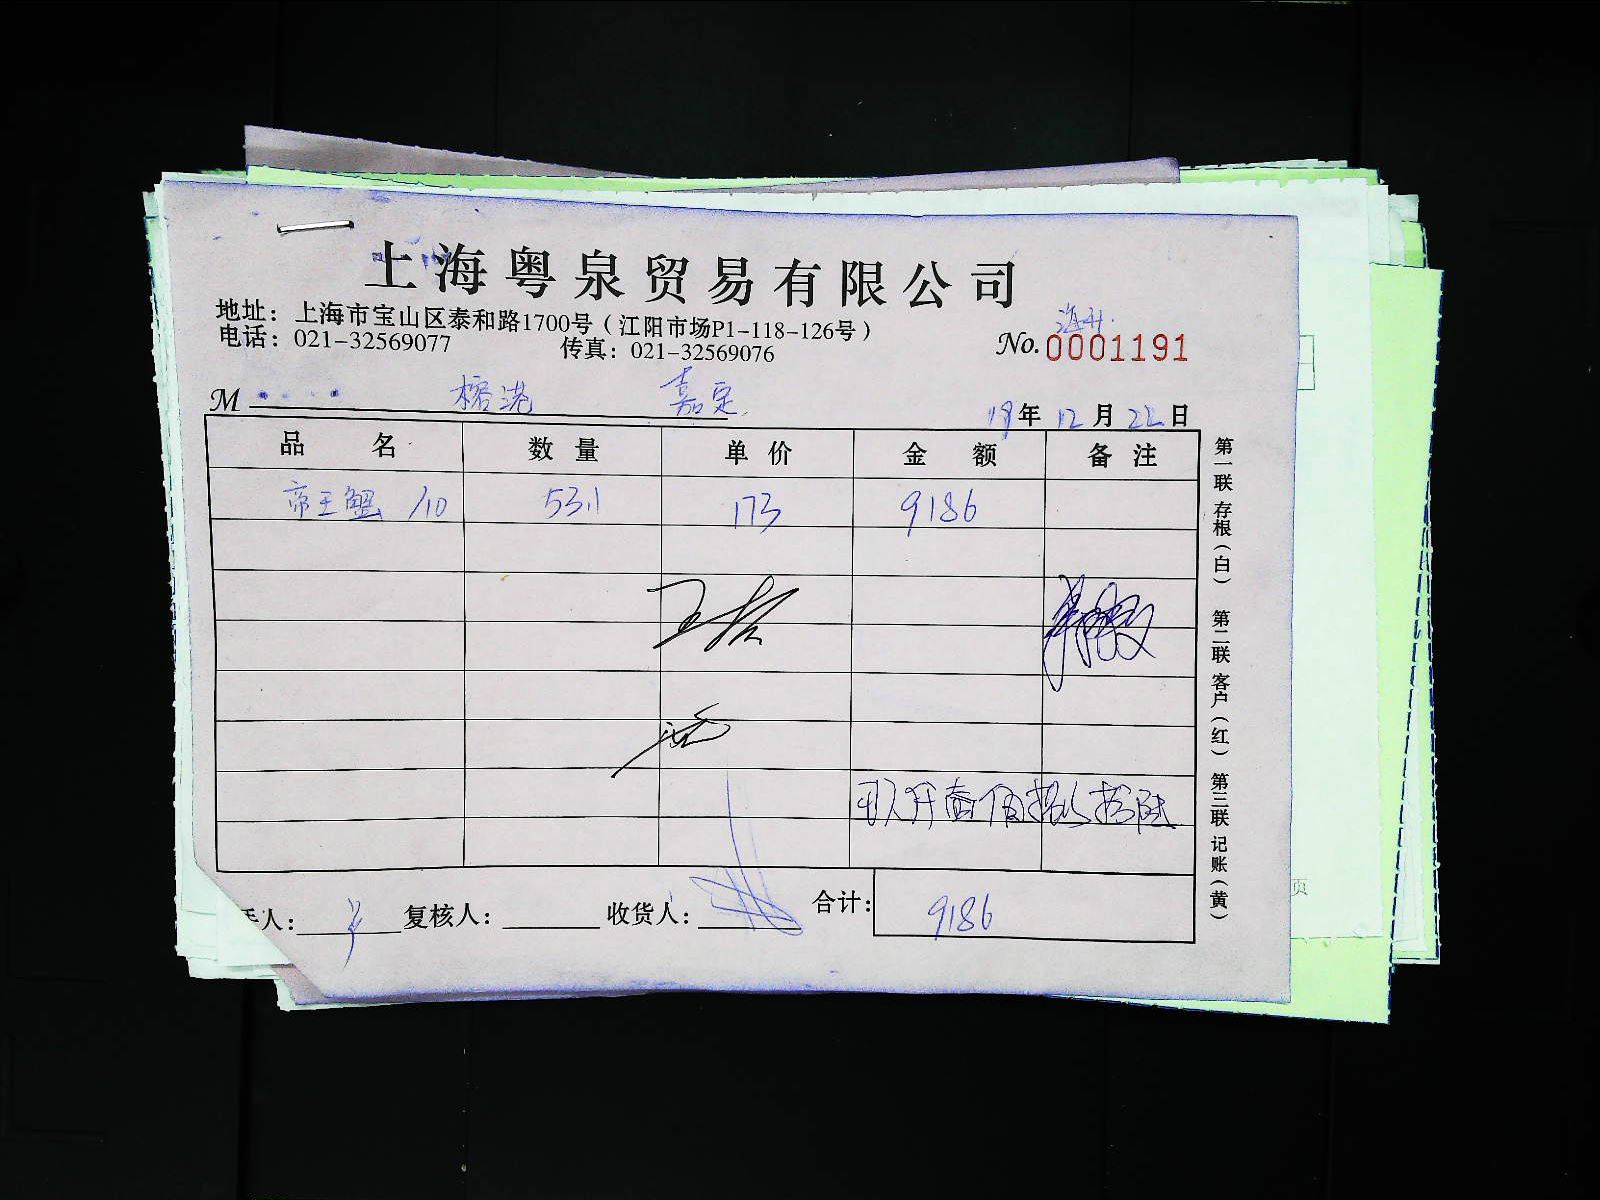 上海粤泉贸易有限公司
地址：上海市宝山区泰和路1700号（江阳市场P1-118-126号）
电话：021-32569077 传真：021-32569076
No.0001191
M 榕港 嘉定
19年12月22日
品名 数量 单价 金额 备注
帝王蟹/10 53.1 173 9186
玖仟壹佰捌拾陆
手人： 复核人： 收货人： 合计：9186
第一联 存根（白） 第二联 客户（红） 第三联 记账（黄）
页